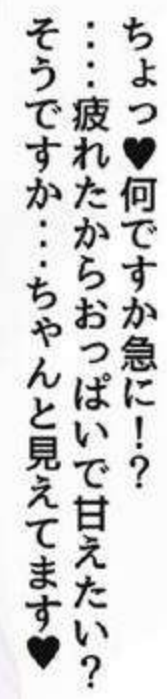 ちょっ♥何ですか急に！？
‥‥疲れたからおっぱいで甘えたい？
そうですか‥‥ちゃんと見えてます♥